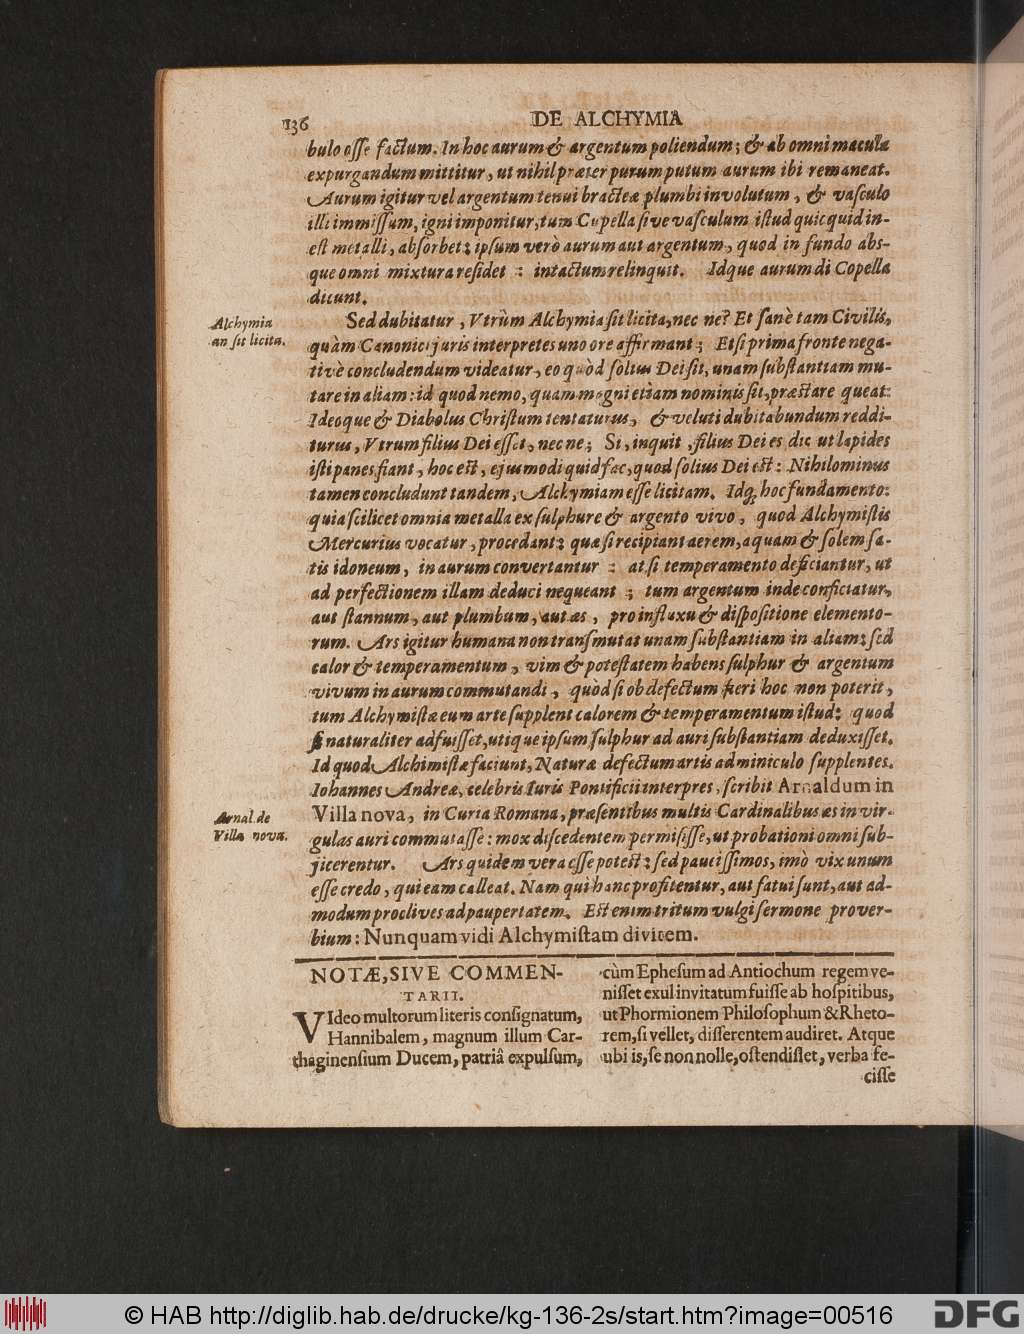 136
DE ALCHYMIA
bulo osse factum. In hoc aurum & argentum poliendum; & ab omni macula
expurgandum mittitur, ut nihil præter purum putum aurum ibi remaneat.
Aurum igitur vel argentum tenui bracteæ plumbi involutum, & vasculo
illi immissum, igni imponitur, tum Cupella sive vasculum istud quicquid in-
est metalli, absorbet; ipsum verò aurum aut argentum, quod in fundo abs-
que omni mixtura residet : intactum relinquit. Idque aurum di Copella
dicunt.
Alchymia
an sit licita.
Sed dubitatur, Utrùm Alchymia sit licita, nec ne? Et sanè tam Civilis,
quàm Canonici juris interpretes uno ore affirmant; Etsi prima fronte nega-
tivè concludendum videatur, eo quòd solius Dei sit, unam substantiam mu-
tare in aliam: id quod nemo, quam magni etiam nominis sit, præstare queat:
Ideoque & Diabolus Christum tentaturus, & veluti dubitabundum reddi-
turus, Utrum filius Dei esset, nec ne; Si, inquit, filius Dei es dic ut lapides
isti panes fiant, hoc est, ejusmodi quid fac, quod solius Dei est: Nihilominus
tamen concludunt tandem, Alchymiam esse licitam. Idq; hoc fundamento:
quia scilicet omnia metalla ex sulphure & argento vivo, quod Alchymistis
Mercurius vocatur, procedant; quæ si recipiant aerem, aquam & solem sa-
tis idoneum, in aurum convertantur : at si temperamento deficiantur, ut
ad perfectionem illam deduci nequeant ; tum argentum inde conficiatur,
aut stannum, aut plumbum, aut æs, pro influxu & dispositione elemento-
rum. Ars igitur humana non transmutat unam substantiam in aliam; sed
calor & temperamentum, vim & potestatem habens sulphur & argentum
vivum in aurum commutandi, quòd si ob defectum fieri hoc non poterit,
tum Alchymistæ eum arte supplent calorem & temperamentum istud; quod
si naturaliter adfuisset, utique ipsum sulphur ad auri substantiam deduxisset.
Id quod Alchimistæ faciunt, Naturæ defectum artis adminiculo supplentes.
Iohannes Andreæ, celebris Iuris Pontificii interpres, scribit Arnaldum in
Arnal. de
Villa nova.
Villa nova, in Curia Romana, præsentibus multis Cardinalibus æs in vir-
gulas auri commutasse: mox discedentem permisisse, ut probationi omni sub-
jicerentur. Ars quidem vera esse potest; sed paucissimos, imò vix unum
esse credo, qui eam calleat. Nam qui hanc profitentur, aut fatui sunt, aut ad-
modum proclives ad paupertatem. Est enim tritum vulgi sermone prover-
bium: Nunquam vidi Alchymistam divitem.
NOTÆ, SIVE COMMEN-
TARII.
VIdeo multorum literis consignatum,
Hannibalem, magnum illum Car-
thaginensium Ducem, patriâ expulsum,
cùm Ephesum ad Antiochum regem ve-
nisset exul invitatum fuisse ab hospitibus,
ut Phormionem Philosophum & Rheto-
rem, si vellet, disserentem audiret. Atque
ubi is, se non nolle, ostendisset, verba fe-
cisse
© HAB http://diglib.hab.de/drucke/kg-136-2s/start.htm?image=00516
DFG